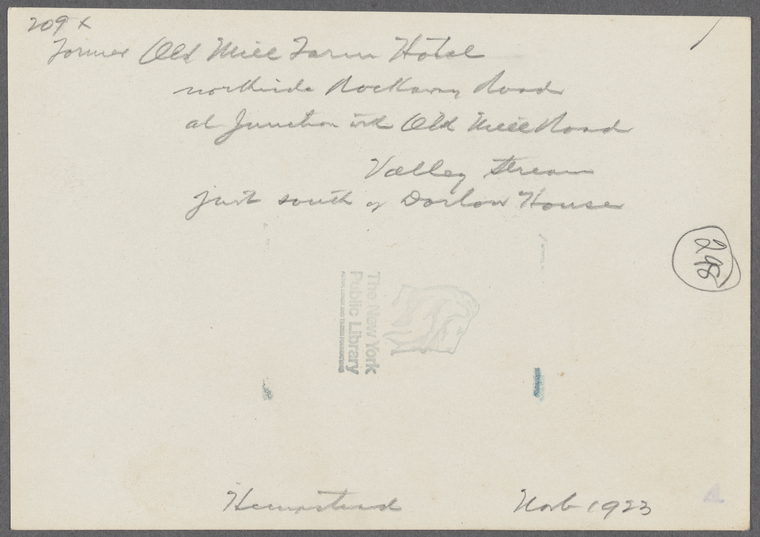 209 x
Former Old Mill Farm Hotel
northside Rockaway Road
at Junction with Old Mill Road
Valley Stream
just south of Dorlon House
298
The New York
Public Library
ASTOR, LENOX AND TILDEN FOUNDATIONS
Hempstead Nov 1923